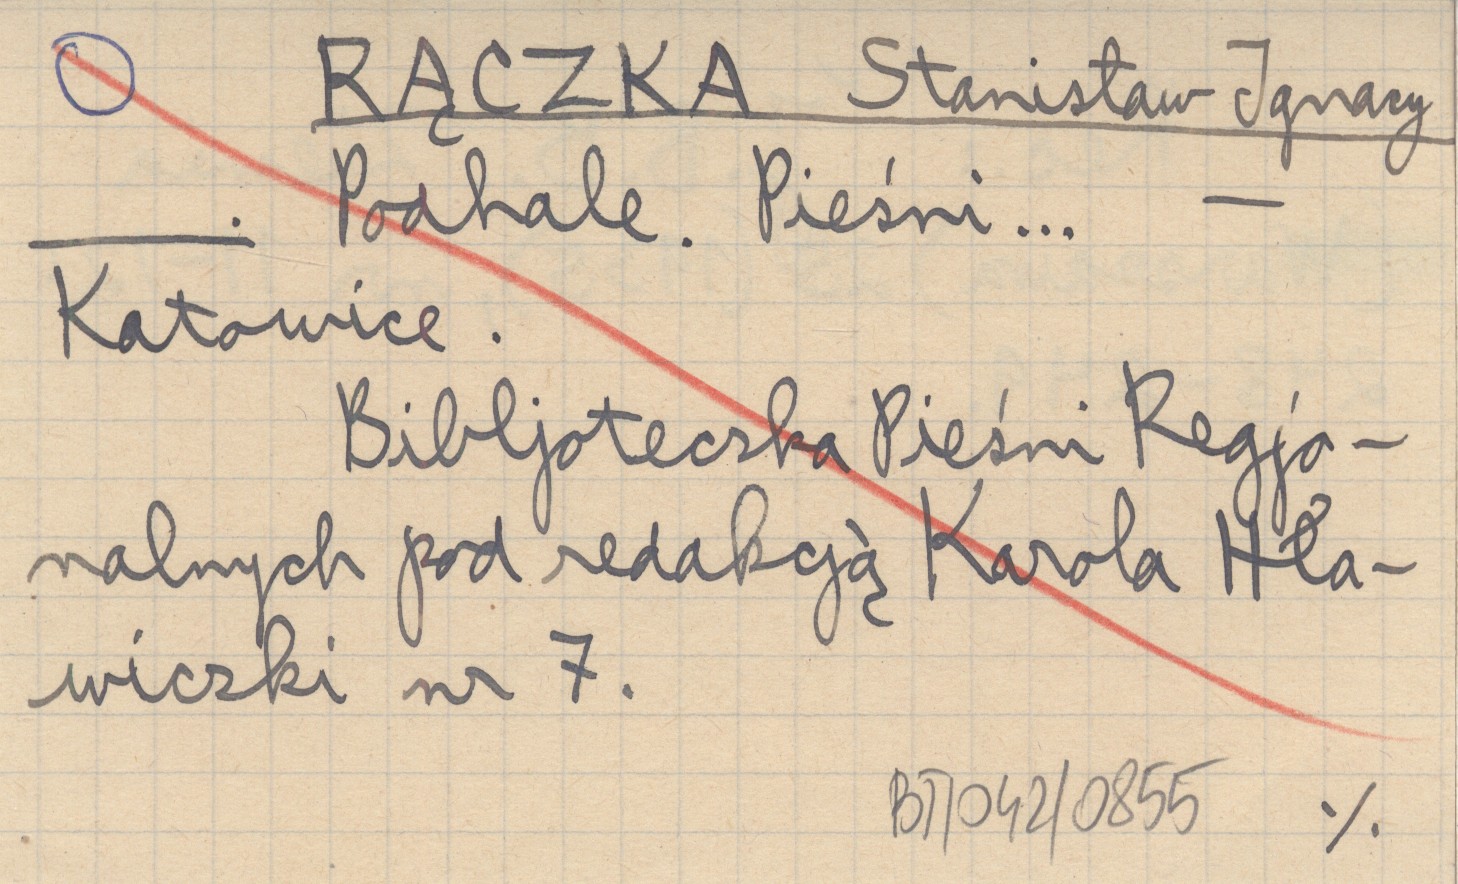 RĄCZKA Stanisław Ignacy
Podhale. Pieśni... —
_____.
Katowice.
Bibljoteczka Pieśni Regjo-
nalnych pod redakcją Karola Hła-
wiczki nr 7.
BT/042/0855 ·/.